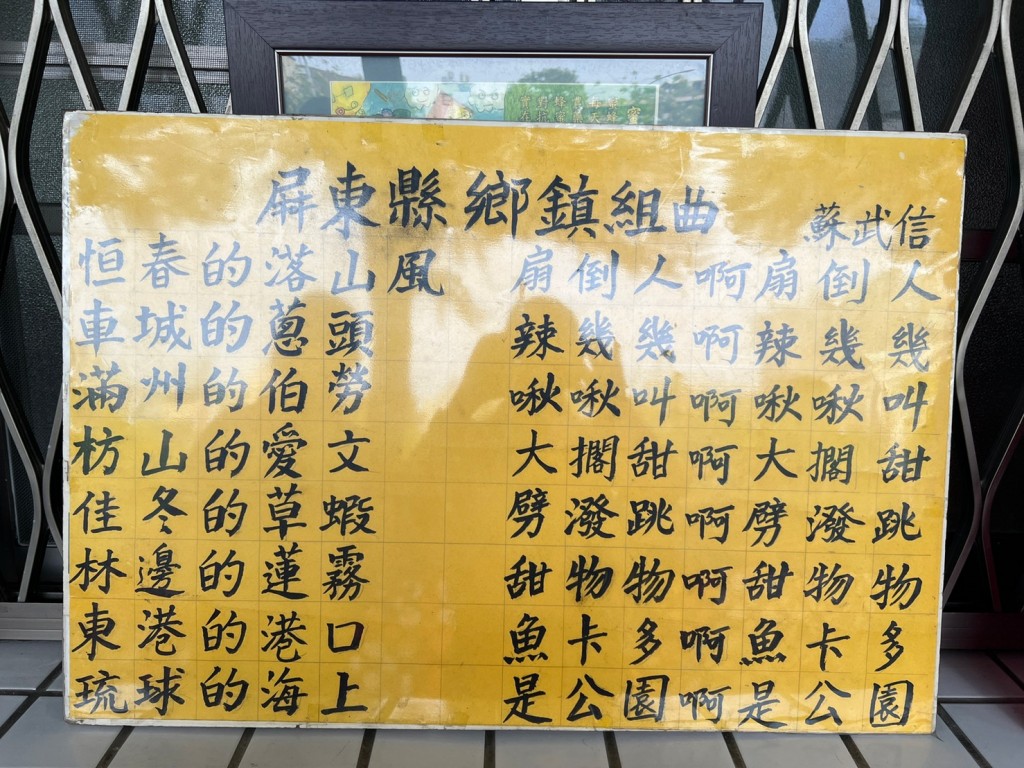 屏東縣鄉鎮組曲
蘇武信
恒春的落山風 扇倒人啊扇倒人
車城的蔥頭 辣幾幾啊辣幾幾
滿州的伯勞 啾啾叫啊啾啾叫
枋山的愛文 大擱甜啊大擱甜
佳冬的草蝦 劈潑跳啊劈潑跳
林邊的蓮霧 甜物物啊甜物物
東港的港口 魚卡多啊魚卡多
琉球的海上 是公園啊是公園